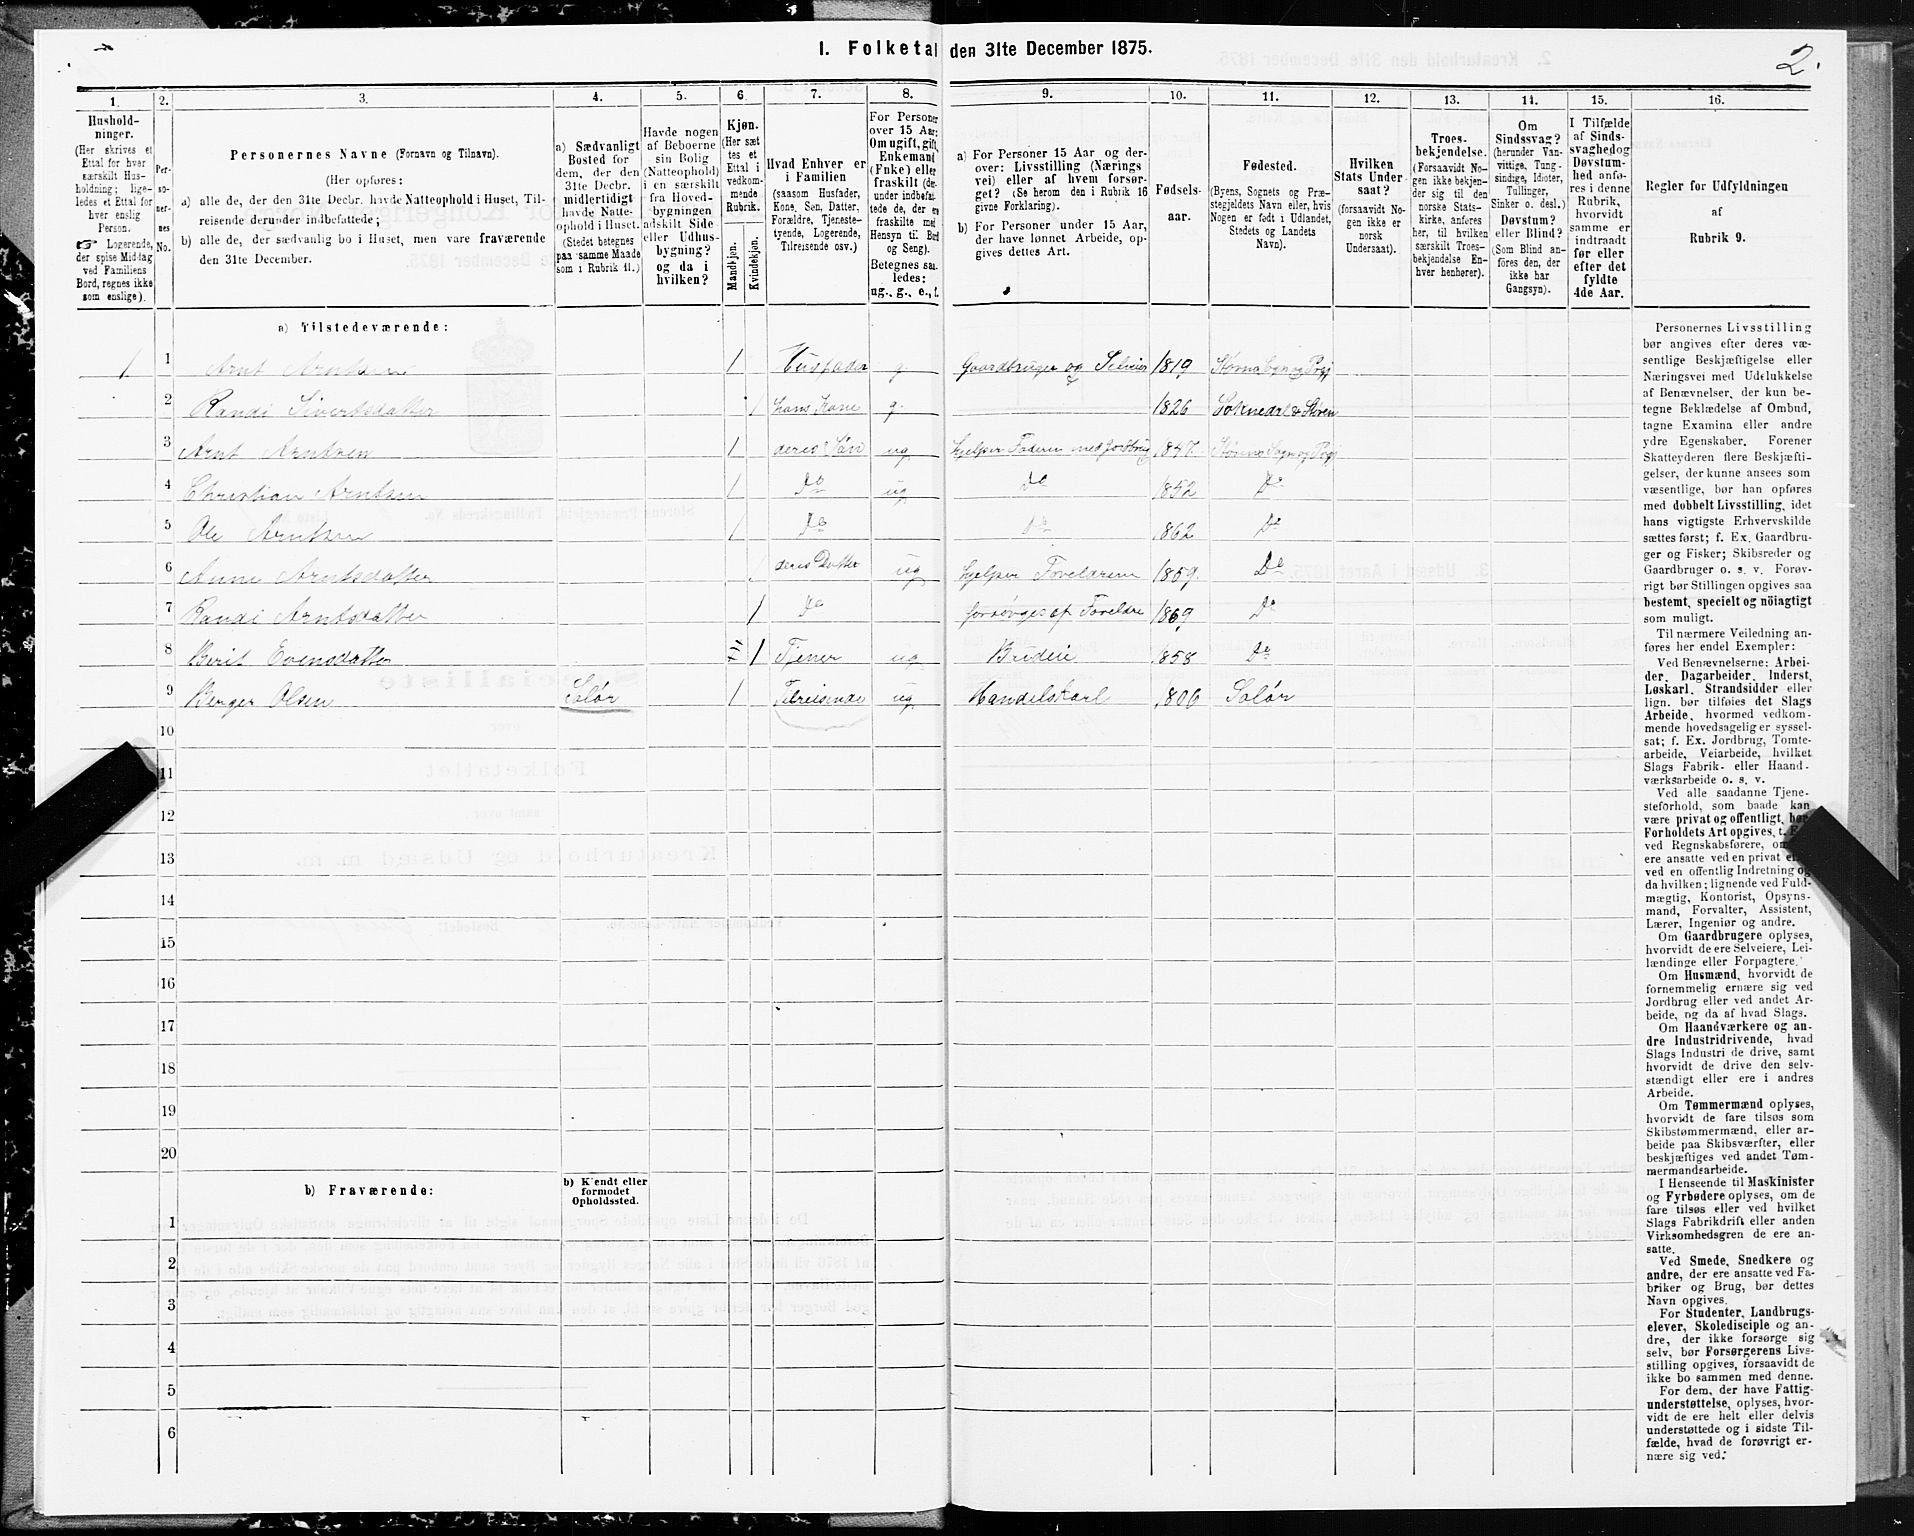 I. Folketal den 31te December 1875.
2.
1.
2.
3.
4.
5.
6.
7.
8.
9.
10.
11.
12.
13.
14.
15.
16.
Hushold-
ninger.
(Her skrives et
Ettal for hver
særskilt Hus-
holdning; lige-
ledes et Ettal for
hver enslig
Person.
☞ Logerende,
der spise Middag
ved Familiens
Bord, regnes ikke
som enslige).
Per-
so-
ner-
nes
No.
Personernes Navne (Fornavn og Tilnavn).
(Her opføres:
a) alle de, der den 31te Decbr. havde Natteophold i Huset, Til-
reisende derunder indbefattede;
b) alle de, der sædvanlig bo i Huset, men vare fraværende
den 31te December.
a) Sædvanligt
Bosted for
dem, der den
31te Decbr.
midlertidigt
havde Natte-
ophold i Huset.
(Stedet betegnes
paa samme Maade
som i Rubrik 11.)
Havde nogen
af Beboerne
sin Bolig
(Natteophold)
i en særskilt
fra Hoved-
bygningen
adskilt Side-
eller Udhus-
bygning?
og da i
hvilken?
Kjøn.
(Her sæt-
tes et
Ettal i
vedkom-
mende
Rubrik.
Mandkjøn.
Kvindekjøn.
Hvad Enhver er
i Familien
(saasom Husfader,
Kone, Søn, Datter,
Forældre, Tjeneste-
tyende, Logerende,
Tilreisende osv.)
For Personer
over 15 Aar:
Om ugift, gift,
Enkemand
(Enke) eller
fraskilt (der-
under indbefat-
tede de, der ere
fraskilte med
Hensyn til Bord
og Seng).
Betegnes saa-
ledes:
ug., g., e., f.
a) For Personer 15 Aar og der-
over: Livsstilling (Nærings-
vei) eller af hvem forsør-
get? (Se herom den i Rubrik 16
givne Forklaring).
b) For Personer under 15 Aar,
der have lønnet Arbeide, op-
gives dettes Art.
Fødsels-
aar.
Fødested.
(Byens, Sognets og Præ-
stegjeldets Navn eller, hvis
Nogen er født i Udlandet,
Stedets og Landets
Navn).
Hvilken
Stats Under-
saat?
(forsaavidt No-
gen ikke er
norsk
Undersaat).
Troes-
bekjendelse.
(Forsaavidt No-
gen ikke bekjen-
der sig til den
norske Stats-
kirke, anføres
her, til hvilken
særskilt Troes-
bekjendelse En-
hver henhører).
Om
Sindssvag?
(herunder Van-
vittige, Tung-
sindige, Idioter,
Tullinger,
Sinker o. desl.)
Døvstum?
eller Blind?
(Som Blind an-
føres den, der
ikke har
Gangsyn).
I Tilfælde
af Sinds-
svaghed og
Døvstum-
hed anfø-
res i denne
Rubrik,
hvorvidt
samme er
indtraadt
før eller
efter det
fyldte
4de Aar.
Regler for Udfyldningen
af
Rubrik 9.
a) Tilstedeværende:
1 1 Arnt Arntsen 1 Husfader g. Gaardbruger og Selveier 1819 Størens Sogn og Pgj
2 Randi Sivertsdatter 1 hans Kone g. 1826 Soknedal & Støren
3 Arnt Arntsen 1 deres Søn ug hjelper Faderen med Jordbrug 1847. Størens Sogn og Pgj
4 Christian Arntsen 1 Do ug Do 1852 Do
5 Ole Arntsen 1 Do Do 1862 Do
6 Anne Arntsdatter 1 deres Datter ug hjelper Foreldrene 1859. Do
7 Randi Arntsdatter 1 Do forsørges af Foreldre 1869 Do
8 Berit Evensdatter 1 Tjener ug Budeie 1858 Do
9 Berger Olsen Solør 1 Tilreisende ug Handelskarl 1806 Solør
10
11
12
13
14
15
16
17
18
19
20
b) Fraværende:
b) Kjendt eller
formodet
Opholdssted.
1
2
3
4
5
6
Personernes Livsstilling
bør angives efter deres væ-
sentlige Beskjæftigelse eller
Næringsvei med Udelukkelse
af Benævnelser, der kun be-
tegne Beklædelse af Ombud,
tagne Examina eller andre
ydre Egenskaber. Forener
Skatteyderen flere Beskjæfti-
gelser, der kunne ansees som
væsentlige, bør han opføres
med dobbelt Livsstilling, idet
hans vigtigste Erhvervskilde
sættes først; f. Ex. Gaardbru-
ger og Fisker; Skibsreder og
Gaardbruger o. s. v. Forøv-
rigt bør Stillingen opgives saa
bestemt, specielt og nöiagtigt
som muligt.
Til nærmere Veiledning an-
føres her endel Exempler:
Ved Benævnelserne: Arbei-
der, Dagarbeider, Inderst,
Løskarl, Strandsidder eller
lign. bør tilføies det Slags
Arbeide, hvormed vedkom-
mende hovedsagelig er syssel-
sat; f. Ex. Jordbrug, Tomte-
arbeide, Veiarbeide, hvilket
Slags Fabrik- eller Haand-
værksarbeide o. s. v.
Ved alle saadanne Tjene-
steforhold, som baade kan
være privat og offentligt, bør
Forholdets Art opgives, t. Ex.
ved Regnskabsførere, om de
ere ansatte ved en privat eller
ved en offentlig Indretning og
da hvilken; lignende ved Fuld-
mægtig, Kontorist, Opsyns-
mand, Forvalter, Assistent,
Lærer, Ingeniør og andre.
Om Gaardbrugere oplyses,
hvorvidt de ere Selveiere, Lei-
lændinge eller Forpagtere.
Om Husmænd, hvorvidt de
fornemmelig ernære sig ved
Jordbrug eller ved andet Ar-
beide, og da af hvad Slags.
Om Haandværkere og an-
dre Industridrivende, hvad
Slags Industri de drive, samt
hvorvidt de drive den selv-
stændigt eller ere i andres
Arbeide.
Om Tømmermænd oplyses,
hvorvidt de fare tilsøs som
Skibstømmermænd, eller ar-
beide paa Skibsværfter, eller
beskjæftiges ved andet Tøm-
mermandsarbeide.
I Henseende til Maskinister
og Fyrbødere oplyses, om de
fare tilsøs eller ved hvilket
Slags Fabrikdrift eller anden
Virksomhedsgren de ere an-
satte.
Ved Smede, Snedkere og
andre, der ere ansatte ved Fa-
briker og Brug, bør dettes
Navn opgives.
For Studenter, Landbrugs-
elever, Skoledisciple og an-
dre, der ikke forsørge sig
selv, bør Forsørgerens Livs-
stilling opgives, forsaavidt de
ikke bo sammen med denne.
For dem, der have Fattig-
understøttelse, oplyses, hvor-
vidt de ere helt eller delvis
understøttede og i sidste Til-
fælde, hvad de forøvrigt er-
nære sig ved.